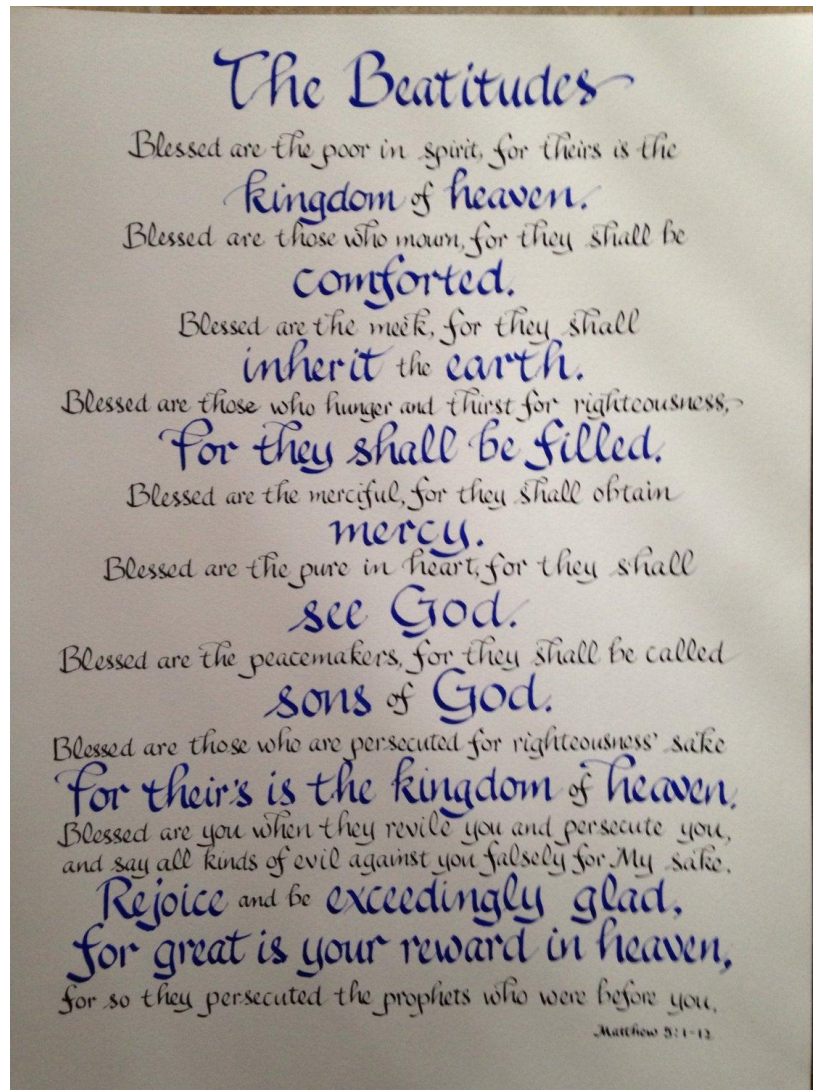 The Beatitudes
Blessed are the poor in spirit, for theirs is the
kingdom of heaven.
Blessed are those who mourn, for they shall be
comforted.
Blessed are the meek, for they shall
inherit the earth.
Blessed are those who hunger and thirst for righteousness,
for they shall be filled.
Blessed are the merciful, for they shall obtain
mercy.
Blessed are the pure in heart, for they shall
see God.
Blessed are the peacemakers, for they shall be called
sons of God.
Blessed are those who are persecuted for righteousness' sake
for their's is the kingdom of heaven.
Blessed are you when they revile you and persecute you,
and say all kinds of evil against you falsely for My sake.
Rejoice and be exceedingly glad,
for great is your reward in heaven,
for so they persecuted the prophets who were before you.
Matthew 5:1-12